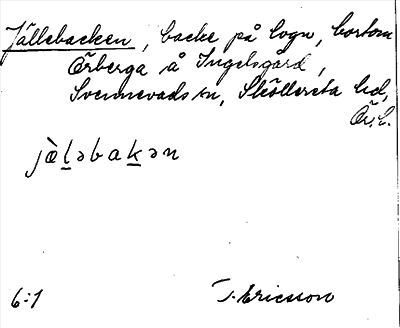 Jällebacken, backe på logn, bortom
Örberga å Ingelsgård,
Svennevads sn, Sköllersta hd,
Ör. l.
jæ̀l̲əbak̲ən
6:1 T. Ericsson